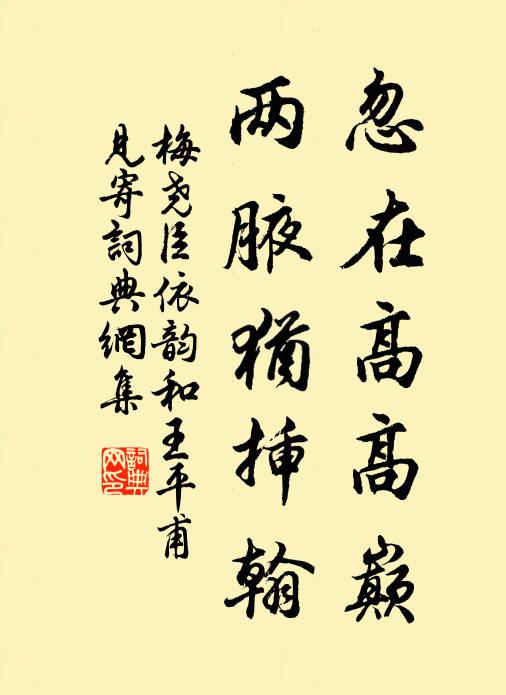 忽在高高巅
两腋犹插翰
梅尧臣依韵和王平甫
见寄词典網集
詞典網印